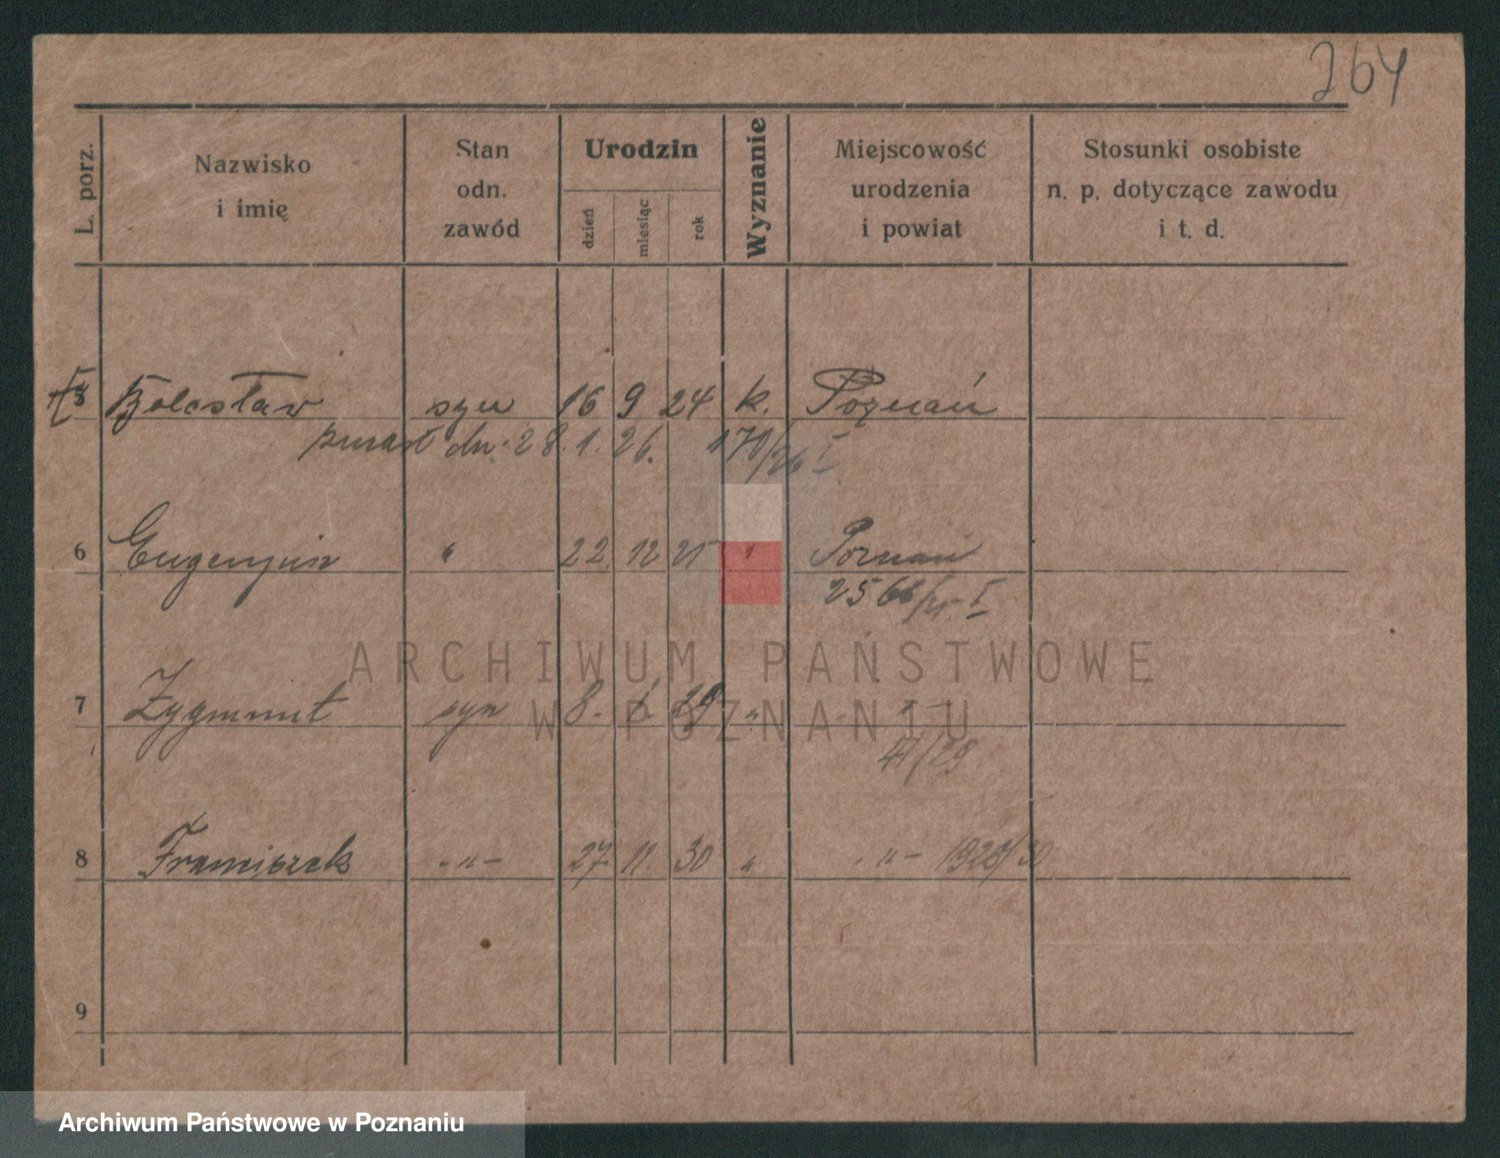 264
L. porz. Nazwisko i imię Stan odn. zawód Urodzin dzień miesiąc rok Wyznanie Miejscowość urodzenia i powiat Stosunki osobiste n. p. dotyczące zawodu i t. d.
5 Bolesław syn 16 9 24 k. Poznań
zmarł dn. 28.1.26. 170/26 I
6 Eugenjusz " 22 12 25 " Poznań
2566/25 I
7 Zygmunt syn 8. 6. 29 " - " -
8 Franciszek - " - 27 11. 30 " - " - 1928/30
9
ARCHIWUM PAŃSTWOWE
W POZNANIU
Archiwum Państwowe w Poznaniu